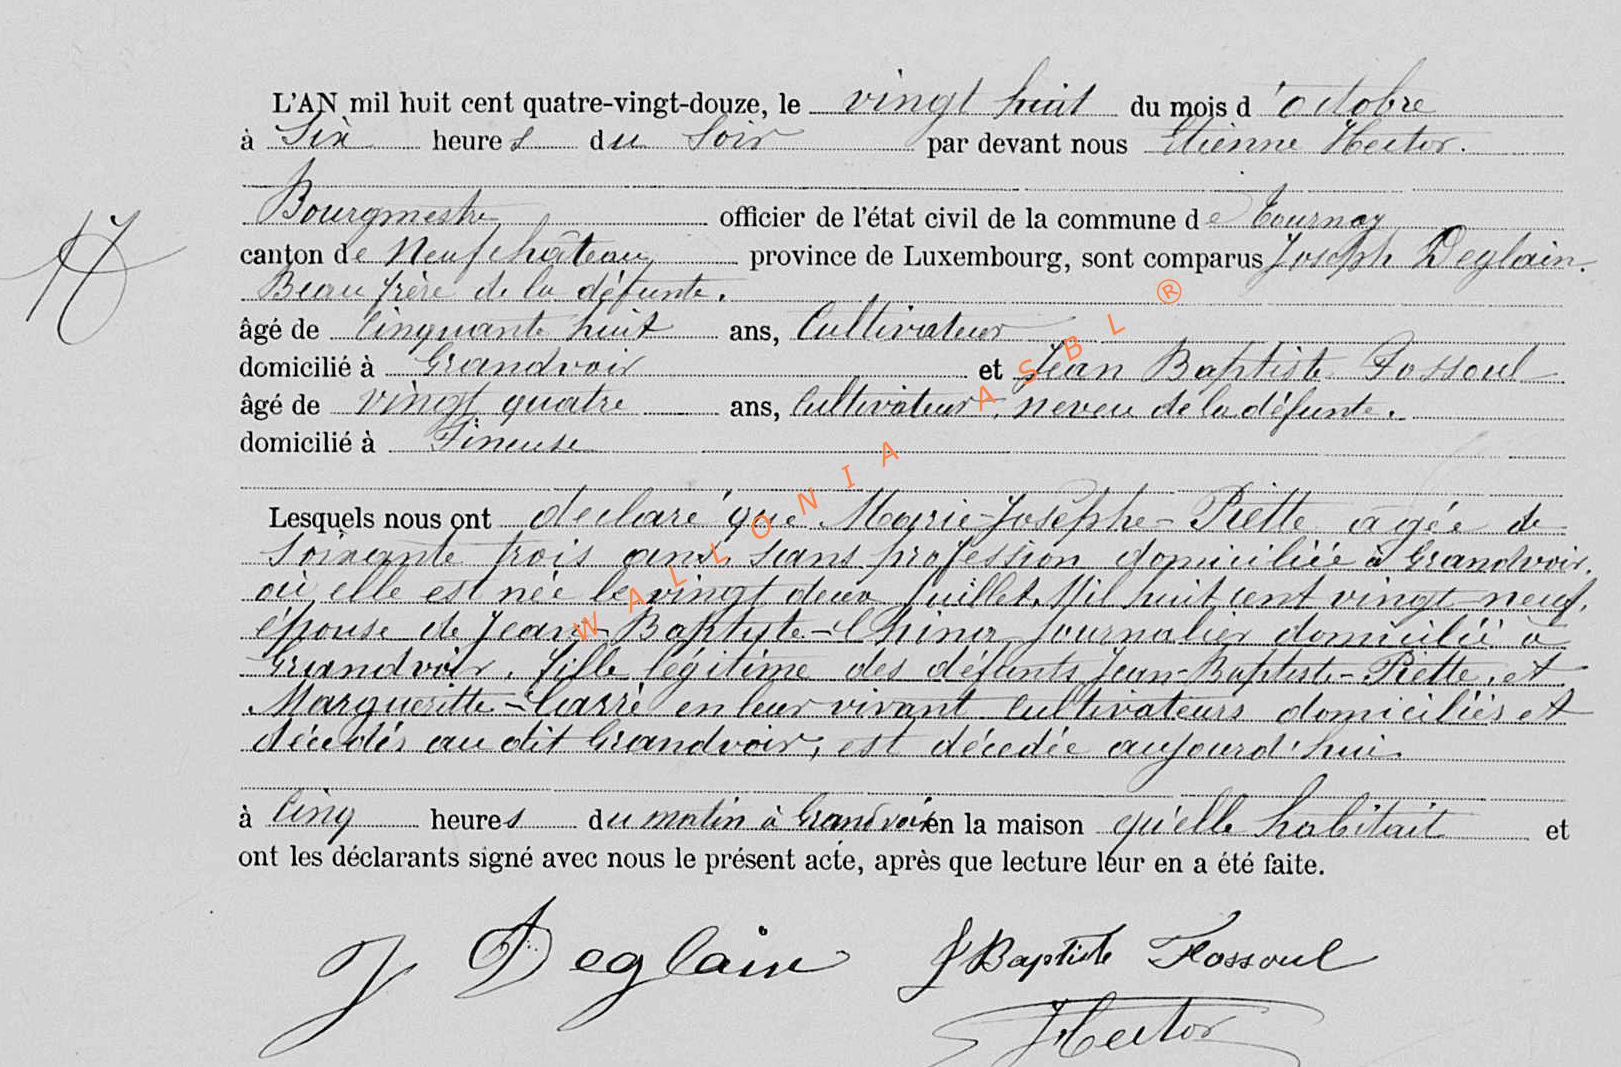 L'AN mil huit cent quatre-vingt-douze, le vingt huit du mois d'octobre
à Six heures du Soir par devant nous Etienne Hector.
Bourgmestre officier de l'état civil de la commune de Tournay
canton de Neufchâteau province de Luxembourg, sont comparus Joseph Deglain.
Beau frère de la défunte.
âgé de Cinquante huit ans, Cultivateur
domicilié à Grandvoir et Jean Baptiste Fossoul
âgé de vingt quatre ans, Cultivateur, neveu de la défunte.
domicilié à Tineuse
Lesquels nous ont declaré que Marie-Josephe-Piette agée de
Soixante trois ans, sans profession domiciliée à Grandvoir.
où elle est née le vingt deux Juillet, Mil huit cent vingt neuf,
épouse de Jean-Baptiste- journalier domicilié à
Grandvoir, fille légitime des défunts Jean-Baptiste-Piette, et
Margueritte-Carré en leur vivant Cultivateurs domiciliés et
décedés au dit Grandvoir, est décedée aujourd'hui.
à Cinq heures du matin à Grandvoir en la maison qu'elle habitait et
ont les déclarants signé avec nous le présent acte, après que lecture leur en a été faite.
J Deglain J Baptiste Fossoul
Hector
WALLONIA ASBL ®